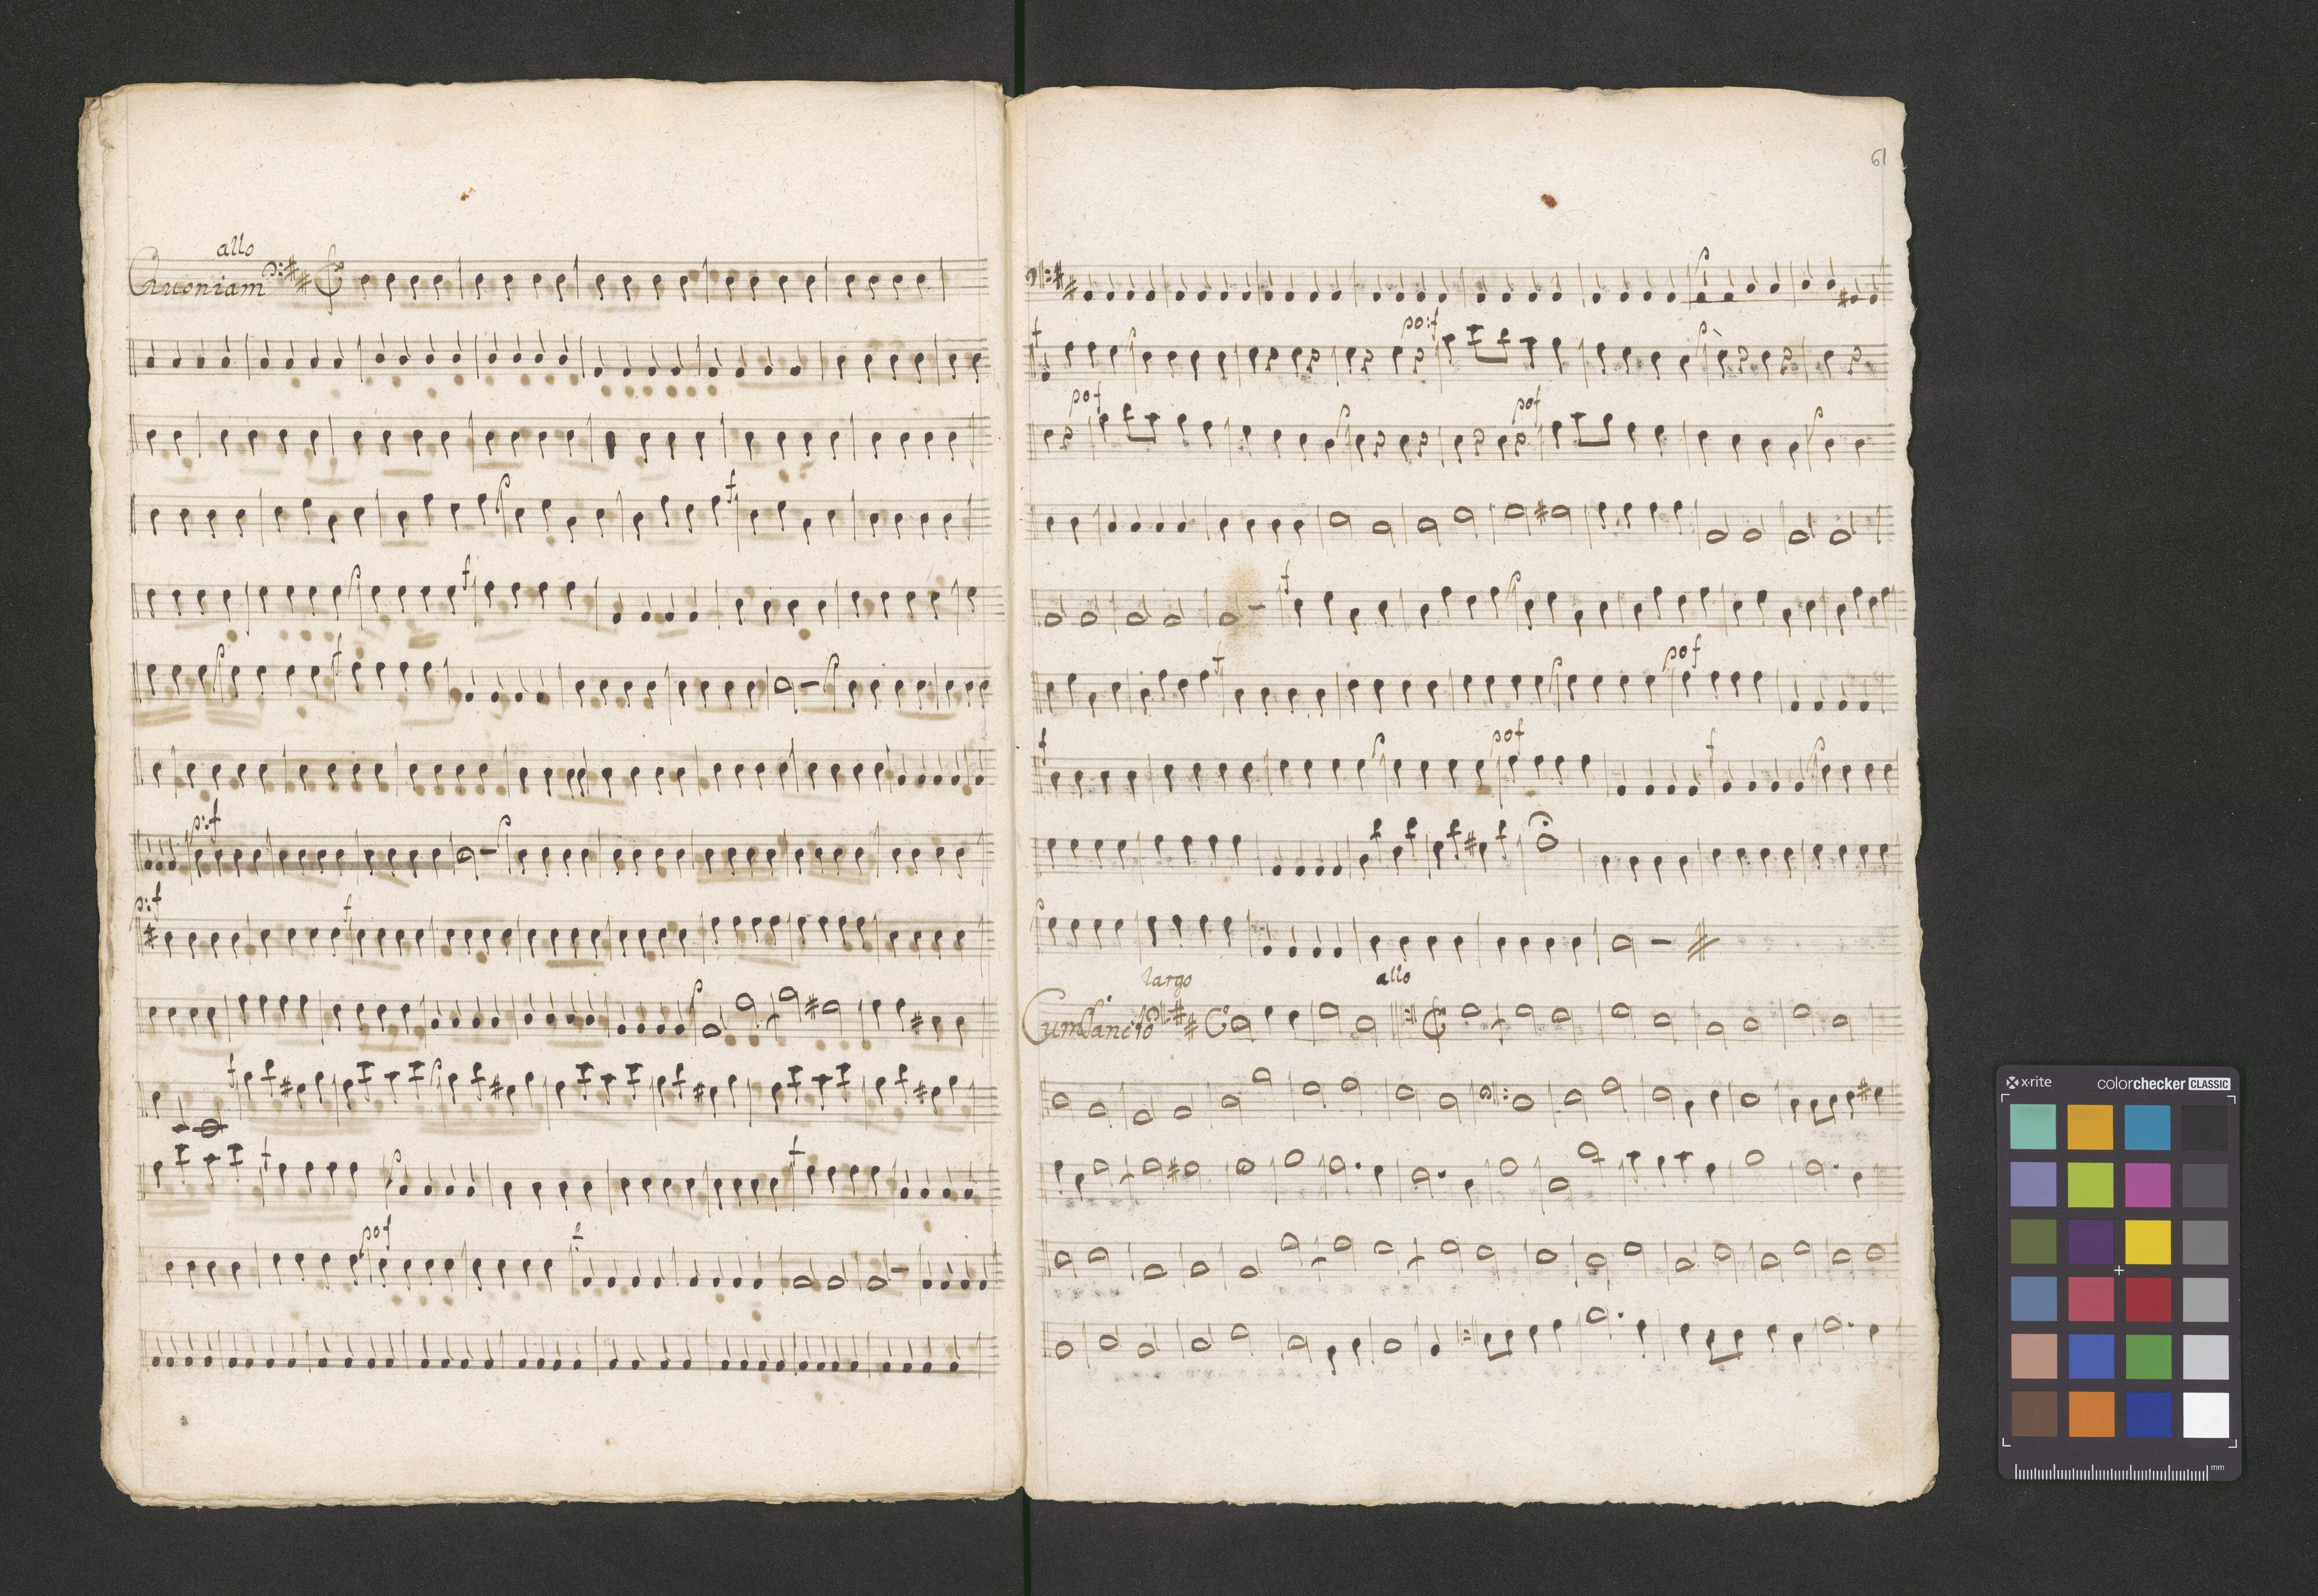 allo
Quoniam
p
f
f
p
f
p:f
p
p:f
f
p
f
p
f
p
f
pof
f
61
p
f
p
po:f
p
pof
p
pof
p
f
p
f
p
pof
f
p
pof
f
p
p
largo
allo
Cum Sancto
x-rite
colorchecker CLASSIC
mm